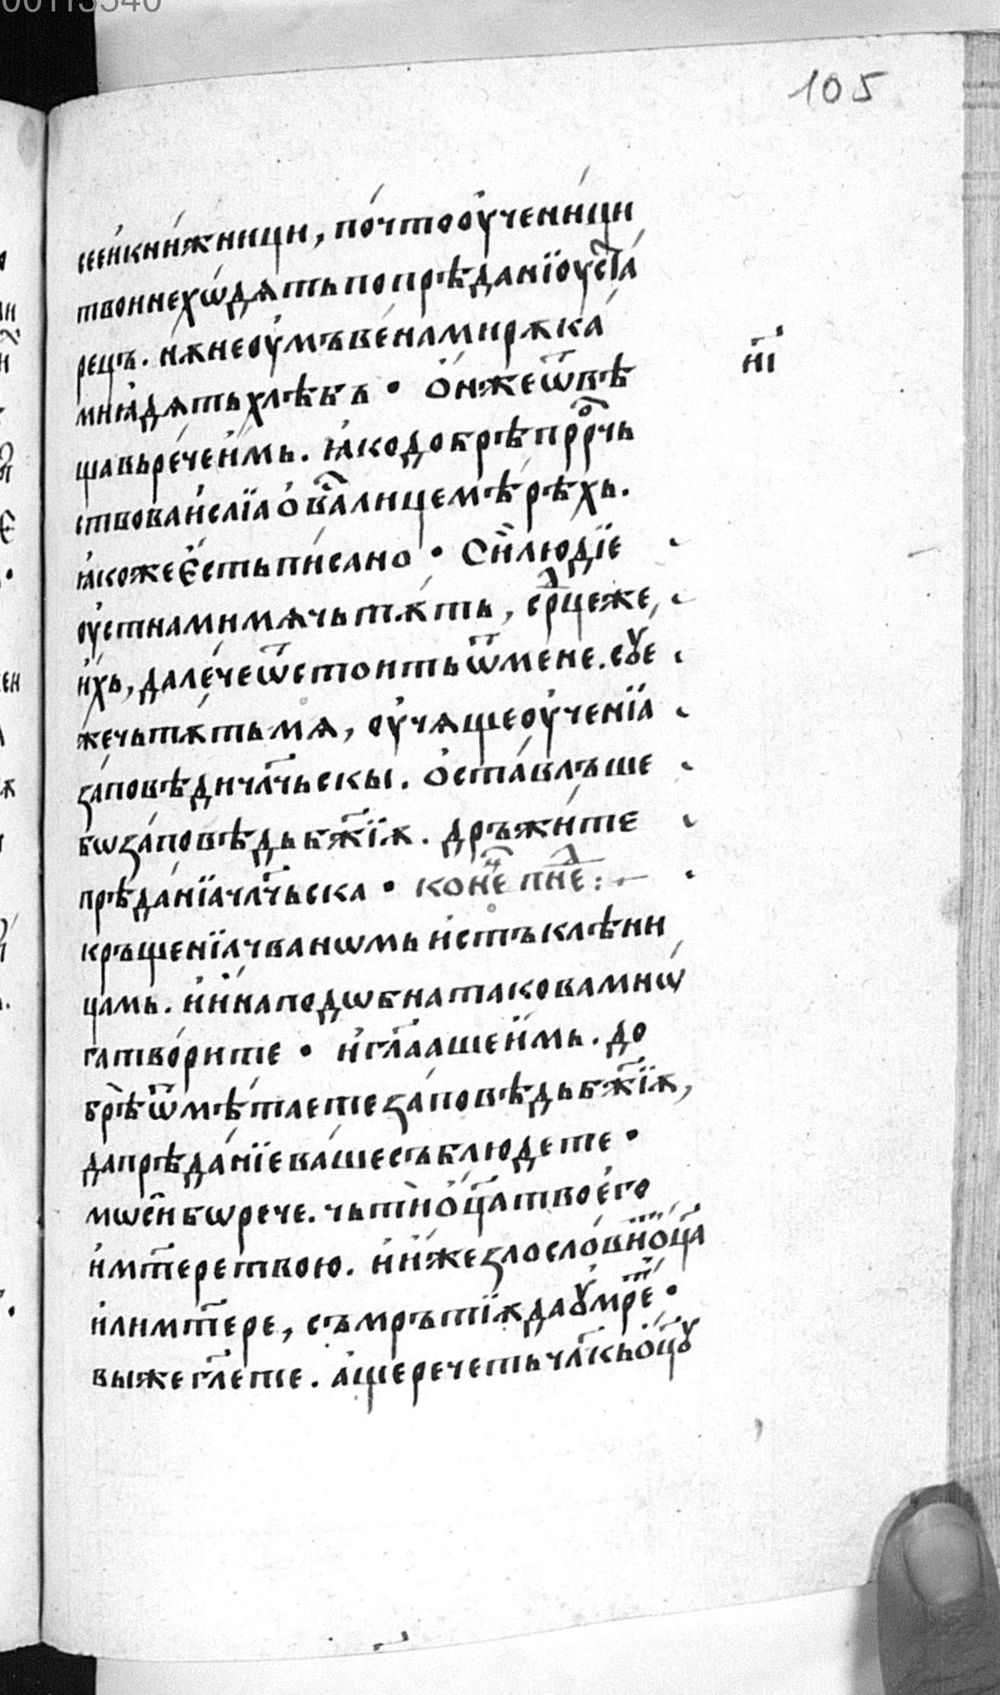 00113540
105
сеєи҆кни́жници, по́чтоѹ҆чени́ци
твоинехѡ́дѧтьпопрѣданїюста́
рець. нѫнеѹ҆мъве́намирѫка́
мнꙗ҆дѧтьхлѣбъ • О҆нжеѿвѣ
н҃і
щавъречеи҆мь. ꙗ҆кодобрѣпрⷪ҇рчь
ствоваи҆саїаовⷭ҇алицемѣрѣхь.
ꙗ҆кожеє҆стьпи́сано • Сїилюдїе
ѹ҆стнамимѧчьтѫть, срⷣцеже,
и҆хь, дале́чеѿстоитьѿмене. сꙋе
жечьтѫтьмѧ, ѹ҆чѧщеѹ҆че́нїа
за́повѣдичл҃чьскы. О҆ста́вльше
бѡза́повѣдьбж҃їѫ. дръжи́те
прѣда́нїачл҃чьска • конⷰ҇е пнⷣе :
кръще́нїачваномьи҆стъклѣни
цамь. и҆и҆наподѡбнатаковамнѡ́
гатво́рите • и҆гл҃аашеи҆мь. до
брѣѿмѣтаетеза́повѣдьбж҃їѫ,
дапрѣда́нїева́шесъблюдете •
мѡсѝбѡрече. чьтѝо҆ц҃атвоего
и҆мт҃еретвою. и҆и҆жезлосло́вито҆ц҃а
и҆лимт҃ере, съмрътїѫдаꙋ҆мрⷮе •
выжегл҃ете. а҆щеречетьчл҃кьо҆ц҃ꙋ